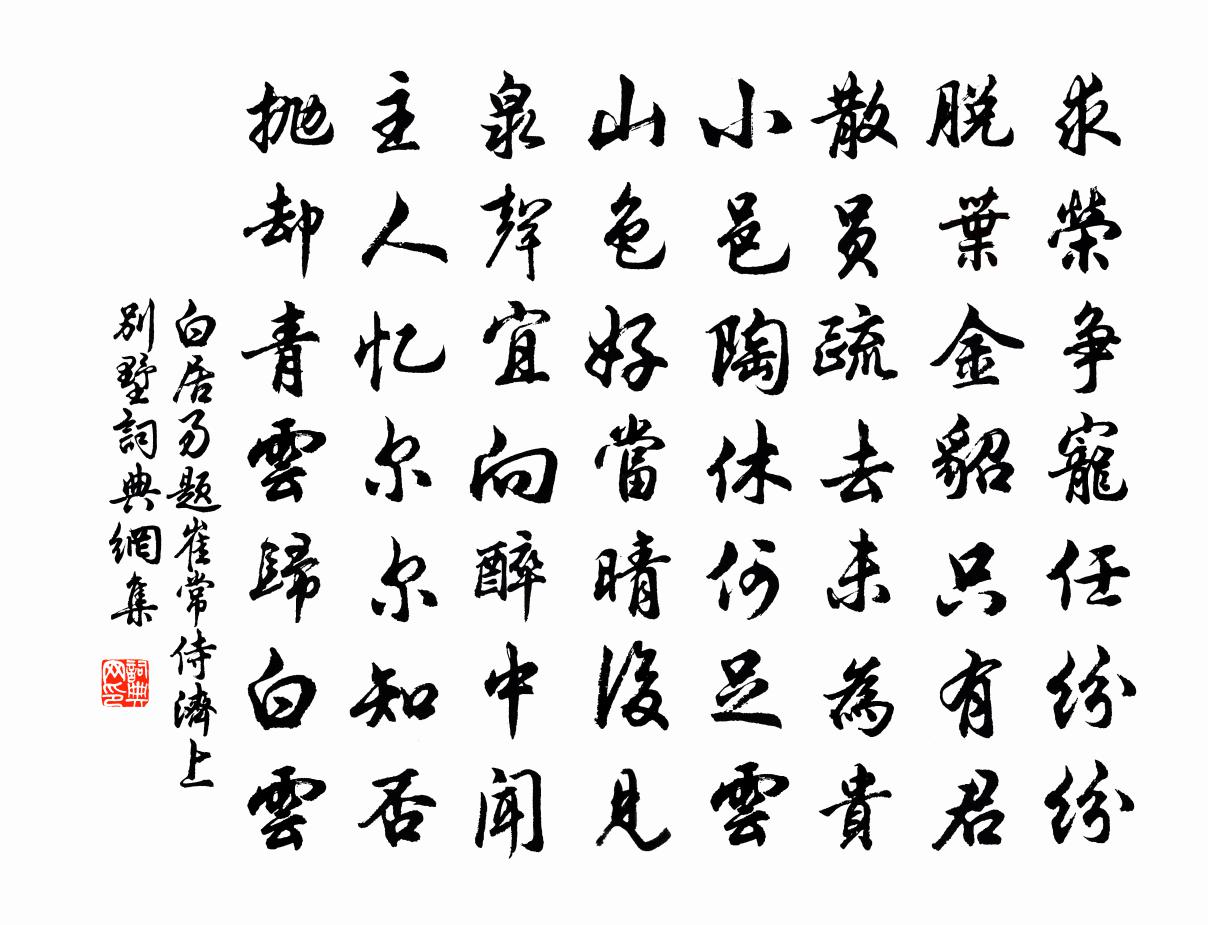 求榮争寵任紛紛
脱葉金貂只有君
散員疏去未為貴
小邑陶休何足雲
山色好當晴後見
泉聲宜向醉中聞
主人忆尔尔知否
抛却青雲歸白雲
白居易題崔常侍濟上
别墅詞典網集
詞典网印